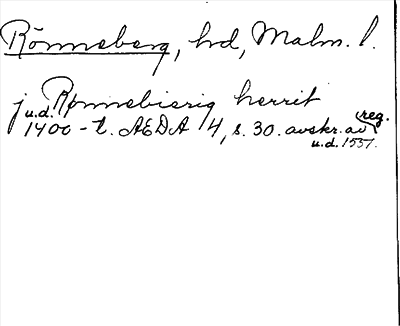 Rönneberg, hd, Malm. l.
j Rønnebierig herrit
u.d. 1400-t. AEDA 4, s. 30. avskr. av reg.
u.d. 1537.